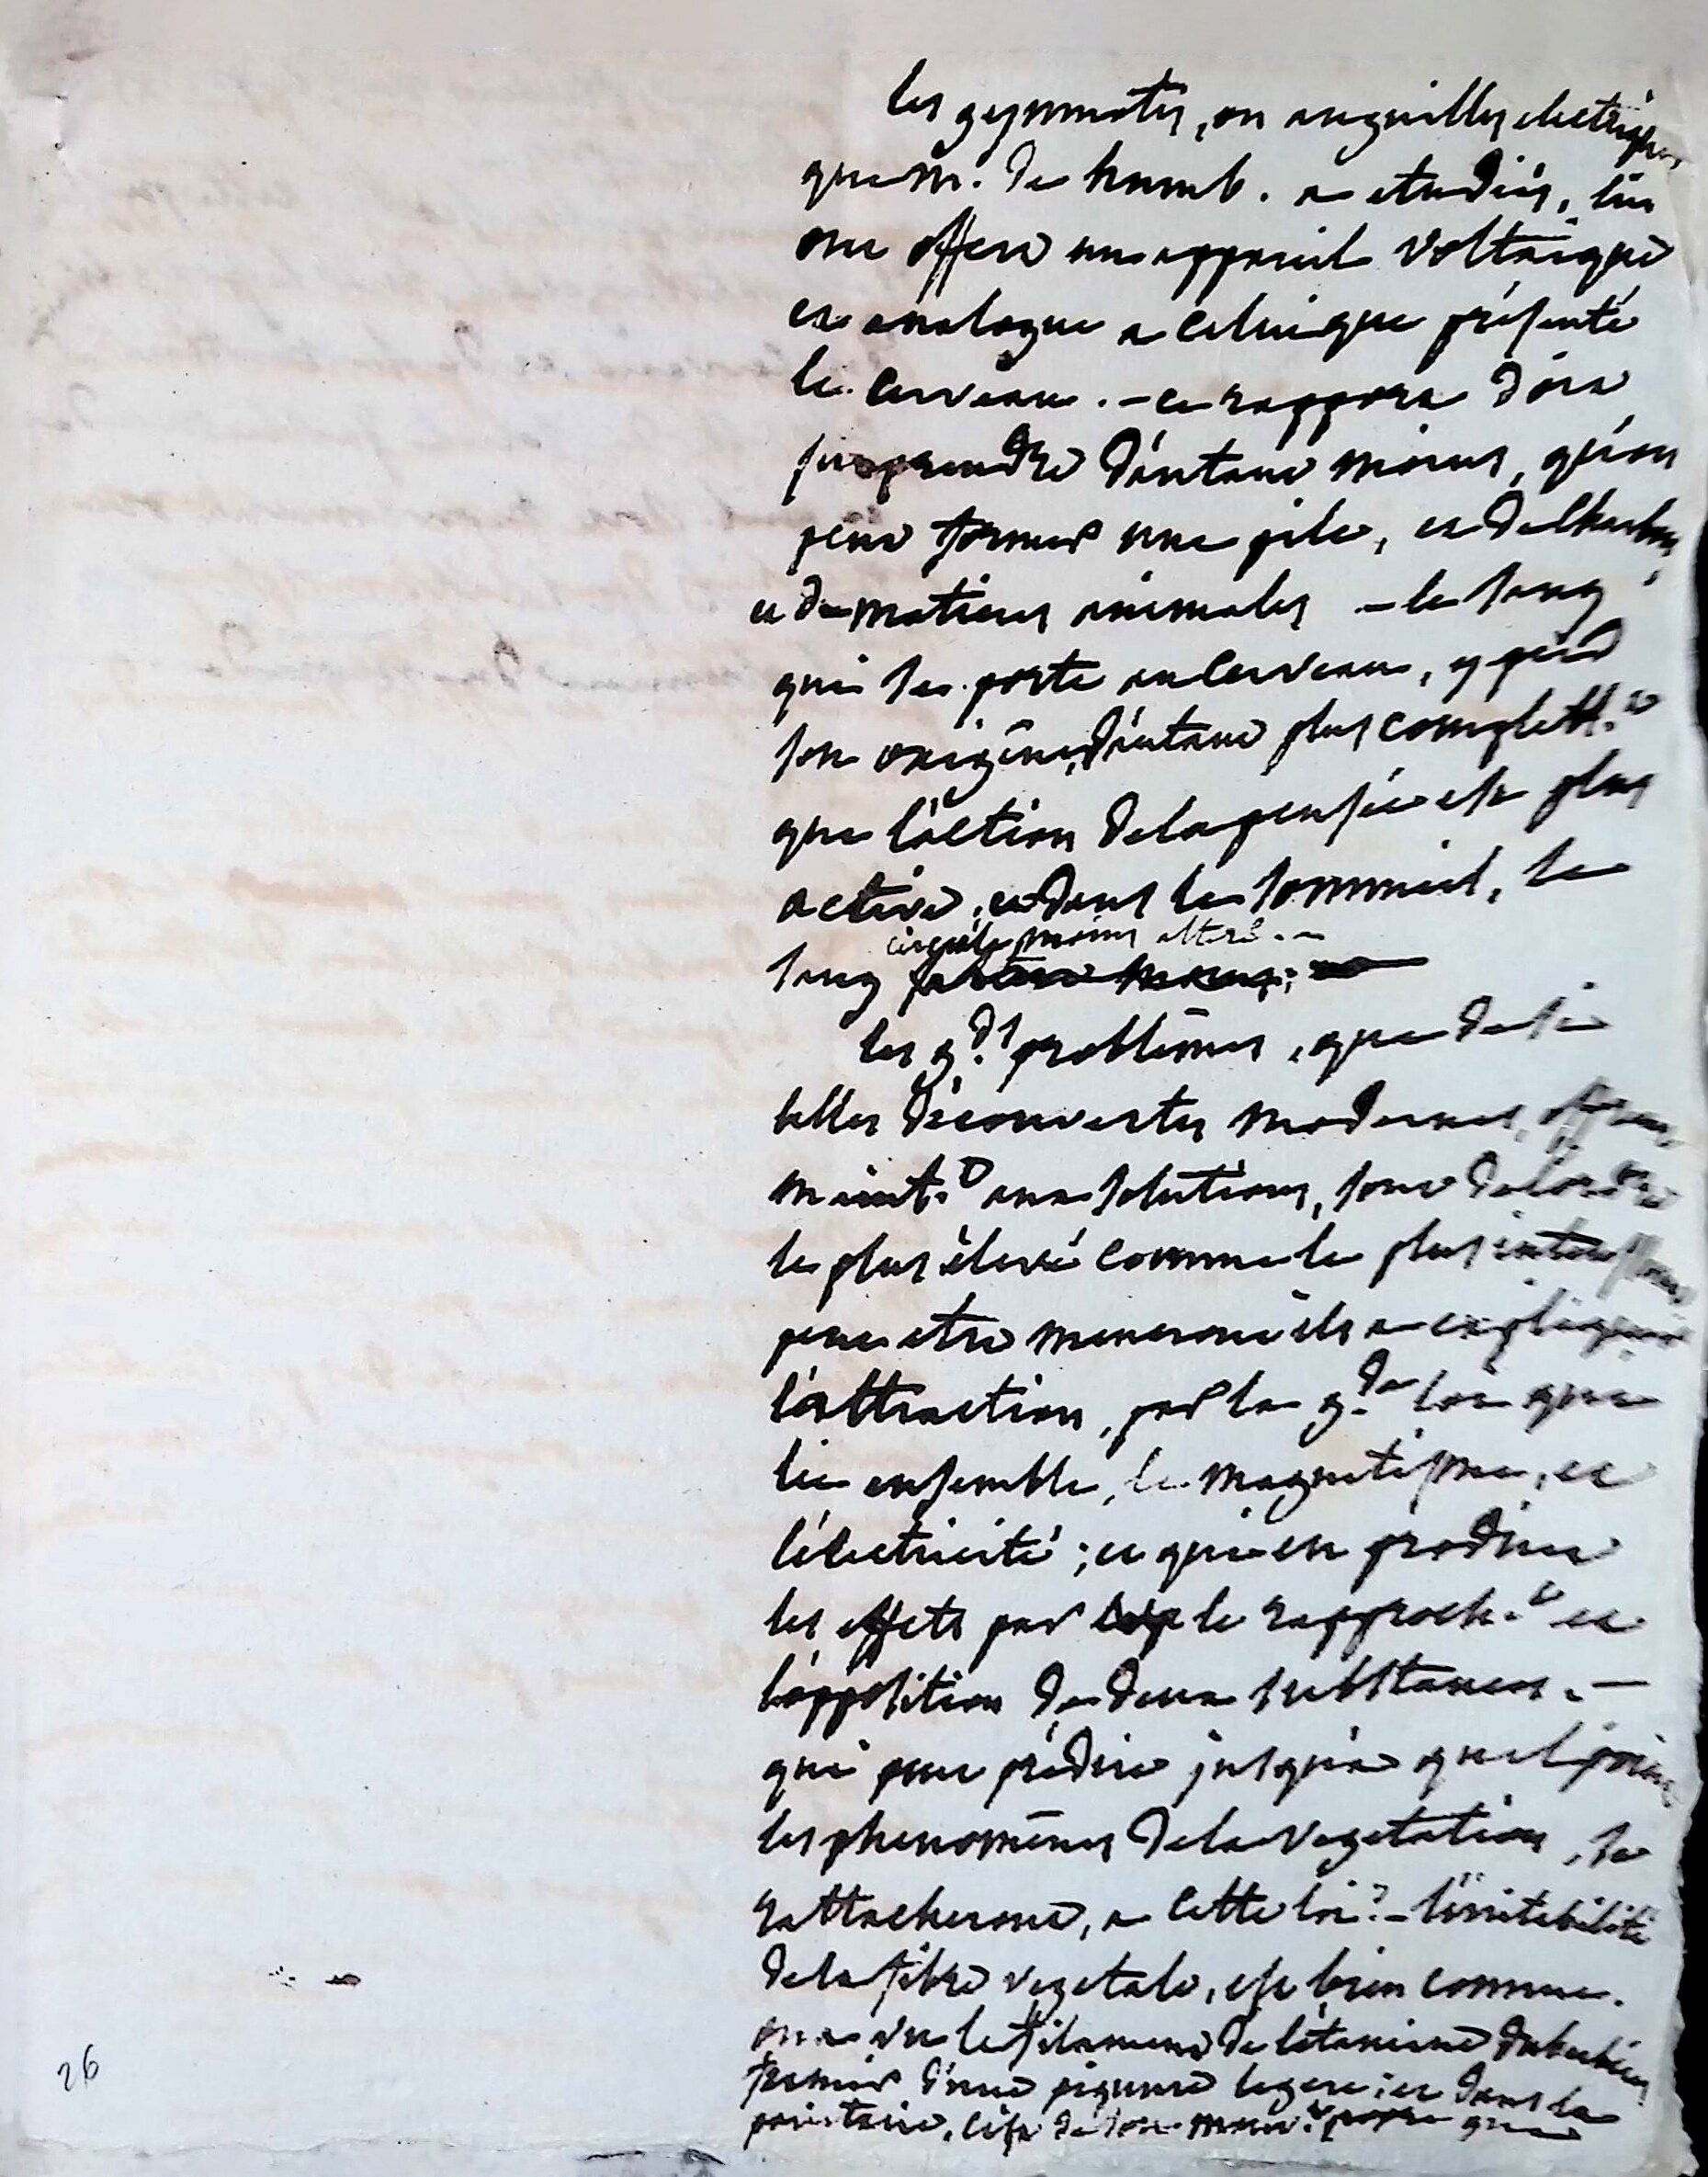 les gymnotes, ou anguilles electriques
que m. de humb. a etudiés, lui
ont offert un appareil voltaique
et analogue a celui que présente
le cerveau. - ce rapport doit
surprendre d'autant moins, qu'on
peut former une pile, et de l'
et de matieres animales - le sang
qui se porte au cerveau, y perd
son oxigène, d'autant plus complettt.
que l'action de la pensée est plus
active, et dans le sommeil, le
circule moins alteré. -
sang
les gds problèmes, que de si
belles découvertes modernes, offrent
maint.t aux solutions, sont de l'ordre
le plus élevé comme le plus interessant,
peut etre meneront ils a expliquer
l'attraction, par la g.de loi que
lie ensemble, le magnetisme, et
l'électricité ; et qui en produit
les effets par le rapproch.t et
l'oppôsition de deux substances. -
qui peut prédire jusqu'à quel point
les phenomènes de la vegetation, se
rattacheront, a cette loi ? - l'irritabilité
de la fibre vegetale, est bien connue.
on a vu le filament de l'étamine
fremir d'une piqure legere ; et dans la
parietaire, c'est de son mouv.t propre que
26